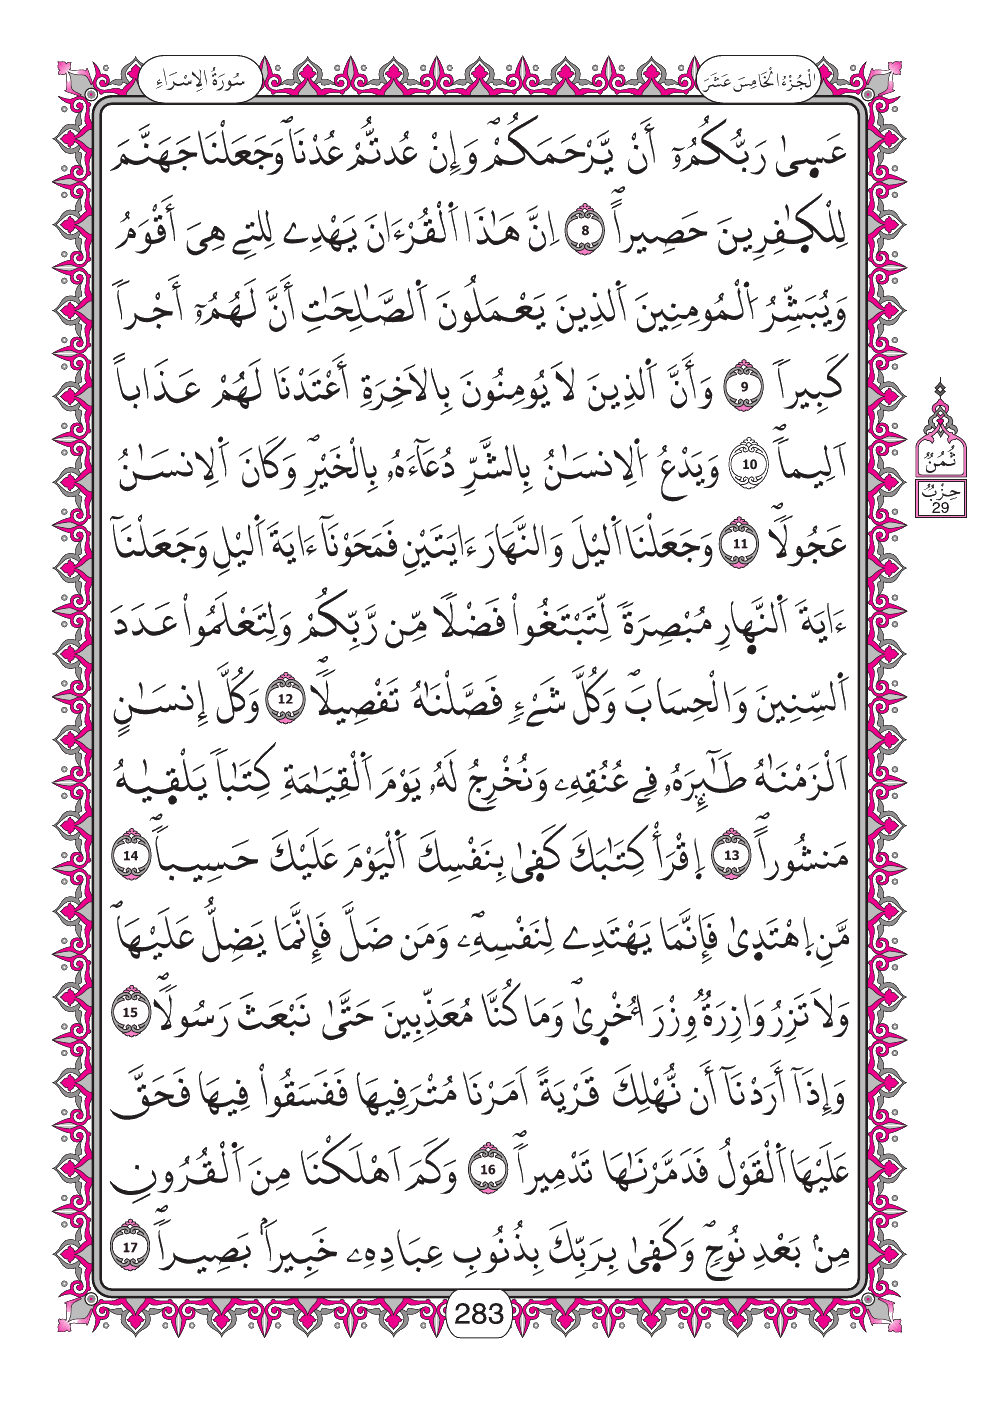 الْجُزْءُ الْخَامِسَ عَشَرَ
سُورَةُ الِاسْرَاءِ
عَسِىٰ رَبُّكُمُۥٓ أَنْ يَّرْحَمَكُمْۖ وَإِنْ عُدتُّمْ عُدْنَاۖ وَجَعَلْنَا جَهَنَّمَ
لِلْكٰفِرِينَ حَصِيراًۖ 8 اِنَّ هَٰذَا اَ۬لْقُرْءَانَ يَهْدِے لِلتِے هِىَ أَقْوَمُ
وَيُبَشِّرُ اُ۬لْمُومِنِينَ اَ۬لذِينَ يَعْمَلُونَ اَ۬لصَّٰلِحَٰتِ أَنَّ لَهُمُۥٓ أَجْراٗ
كَبِيراٗ 9 وَأَنَّ اَ۬لذِينَ لَا يُومِنُونَ بِالَاخِرَةِ أَعْتَدْنَا لَهُمْ عَذَاباً
اَلِيماٗۖ 10 وَيَدْعُ اُ۬لِانسَٰنُ بِالشَّرِّ دُعَآءَهُۥ بِالْخَيْرِۖ وَكَانَ اَ۬لِانسَٰنُ
عَجُولاٗۖ 11 وَجَعَلْنَا اَ۬ليْلَ وَالنَّهَارَ ءَايَتَيْنِ فَمَحَوْنَآ ءَايَةَ اَ۬ليْلِ وَجَعَلْنَآ
ءَايَةَ اَ۬لنَّهِارِ مُبْصِرَةٗ لِّتَبْتَغُواْ فَضْلاٗ مِّن رَّبِّكُمْ وَلِتَعْلَمُواْ عَدَدَ
اَ۬لسِّنِينَ وَالْحِسَابَۖ وَكُلَّ شَےْءٖ فَصَّلْنَٰهُ تَفْصِيلاٗۖ 12 وَكُلَّ إِنسَٰنٍ
اَلْزَمْنَٰهُ طَٰٓئِرَهُۥ فِے عُنُقِهِۦ وَنُخْرِجُ لَهُۥ يَوْمَ اَ۬لْقِيَٰمَةِ كِتَٰباٗ يَلْقِيٰهُ
مَنشُوراًۖ 13 اِ۪قْرَأْ كِتَٰبَكَ كَفِىٰ بِنَفْسِكَ اَ۬ليَوْمَ عَلَيْكَ حَسِيباٗۖ 14
مَّنِ اِ۪هْتَدِىٰ فَإِنَّمَا يَهْتَدِے لِنَفْسِهِۦۖ وَمَن ضَلَّ فَإِنَّمَا يَضِلُّ عَلَيْهَاۖ
وَلَا تَزِرُ وَازِرَةٞ وِزْرَ أُخْرِىٰۖ وَمَا كُنَّا مُعَذِّبِينَ حَتَّىٰ نَبْعَثَ رَسُولاٗۖ 15
وَإِذَآ أَرَدْنَآ أَن نُّهْلِكَ قَرْيَةً اَمَرْنَا مُتْرَفِيهَا فَفَسَقُواْ فِيهَا فَحَقَّ
عَلَيْهَا اَ۬لْقَوْلُ فَدَمَّرْنَٰهَا تَدْمِيراٗۖ 16 وَكَمَ اَهْلَكْنَا مِنَ اَ۬لْقُرُونِ
مِنۢ بَعْدِ نُوحٖۖ وَكَفِىٰ بِرَبِّكَ بِذُنُوبِ عِبَادِهِۦ خَبِيراَۢ بَصِيراٗۖ 17
ثُمُنٌ
حِزْبٌ
29
283